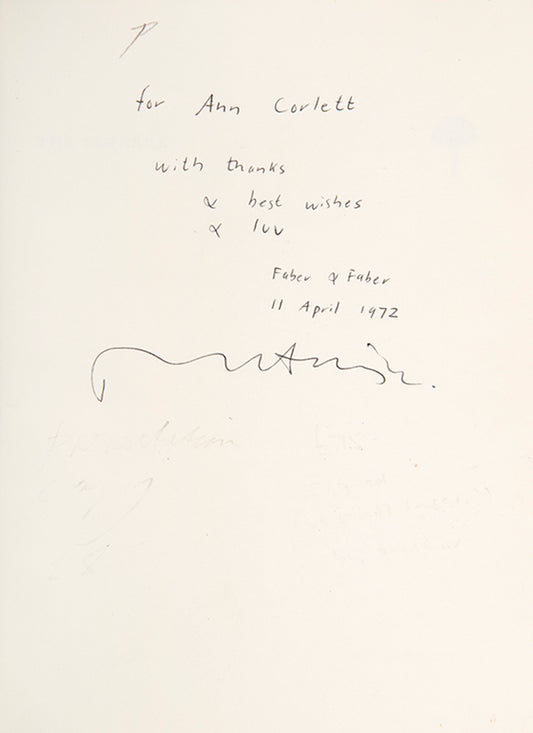 for Ann Corlett
with thanks
& best wishes
& luv
Faber & Faber
11 April 1972